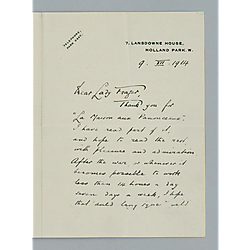 TELEPHONE:
PARK
7, LANSDOWNE HOUSE,
HOLLAND PARK. W.
9. XII. 1914
Dear Lady Frazer,
Thank you for
"La Maison aux Panonceaux".
I have read part of it,
and hope to read the rest
with pleasure and admiration
After the war, or whenever it
becomes possible to work
less than 14 hours a day
seven days a week, I hope
that auld lang syne will